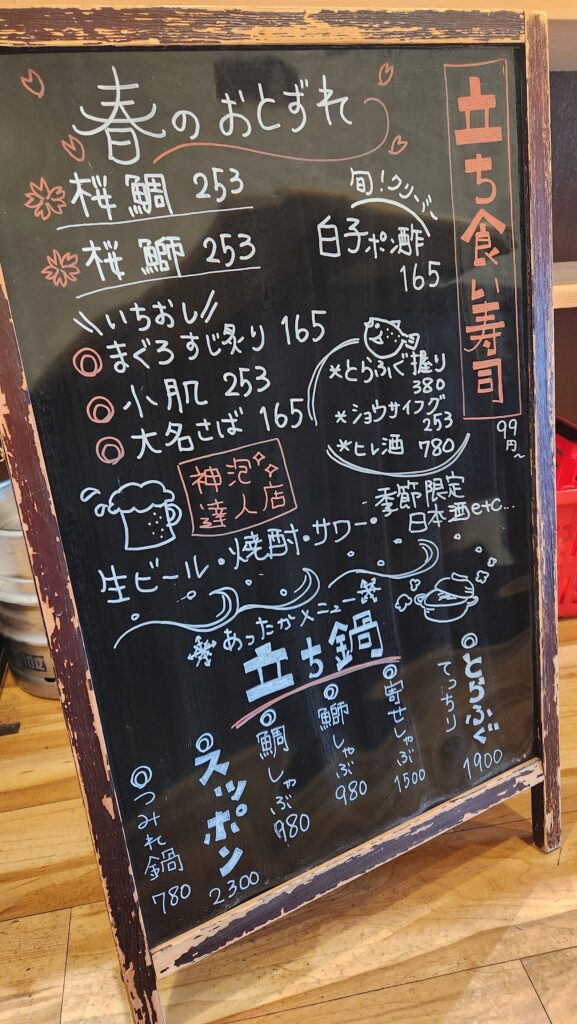 春のおとずれ
桜鯛 253
桜鰤 253
\\いちおし//
◎まぐろすじ炙り 165
◎小肌 253
◎大名さば 165
立ち食い寿司
99円~
旬!クリーミー
白子ポン酢
165
*とらふぐ握り
380
*ショウサイフグ
253
*ヒレ酒 780
神泡
達人店
生ビール・焼酎・サワー・季節限定
日本酒etc...
あったかメニュー
立ち鍋
◎とらふぐ
てっちり
1900
◎寄せしゃぶ
1500
◎鰤しゃぶ
980
◎鯛しゃぶ
980
◎スッポン
2300
◎つみれ鍋
780